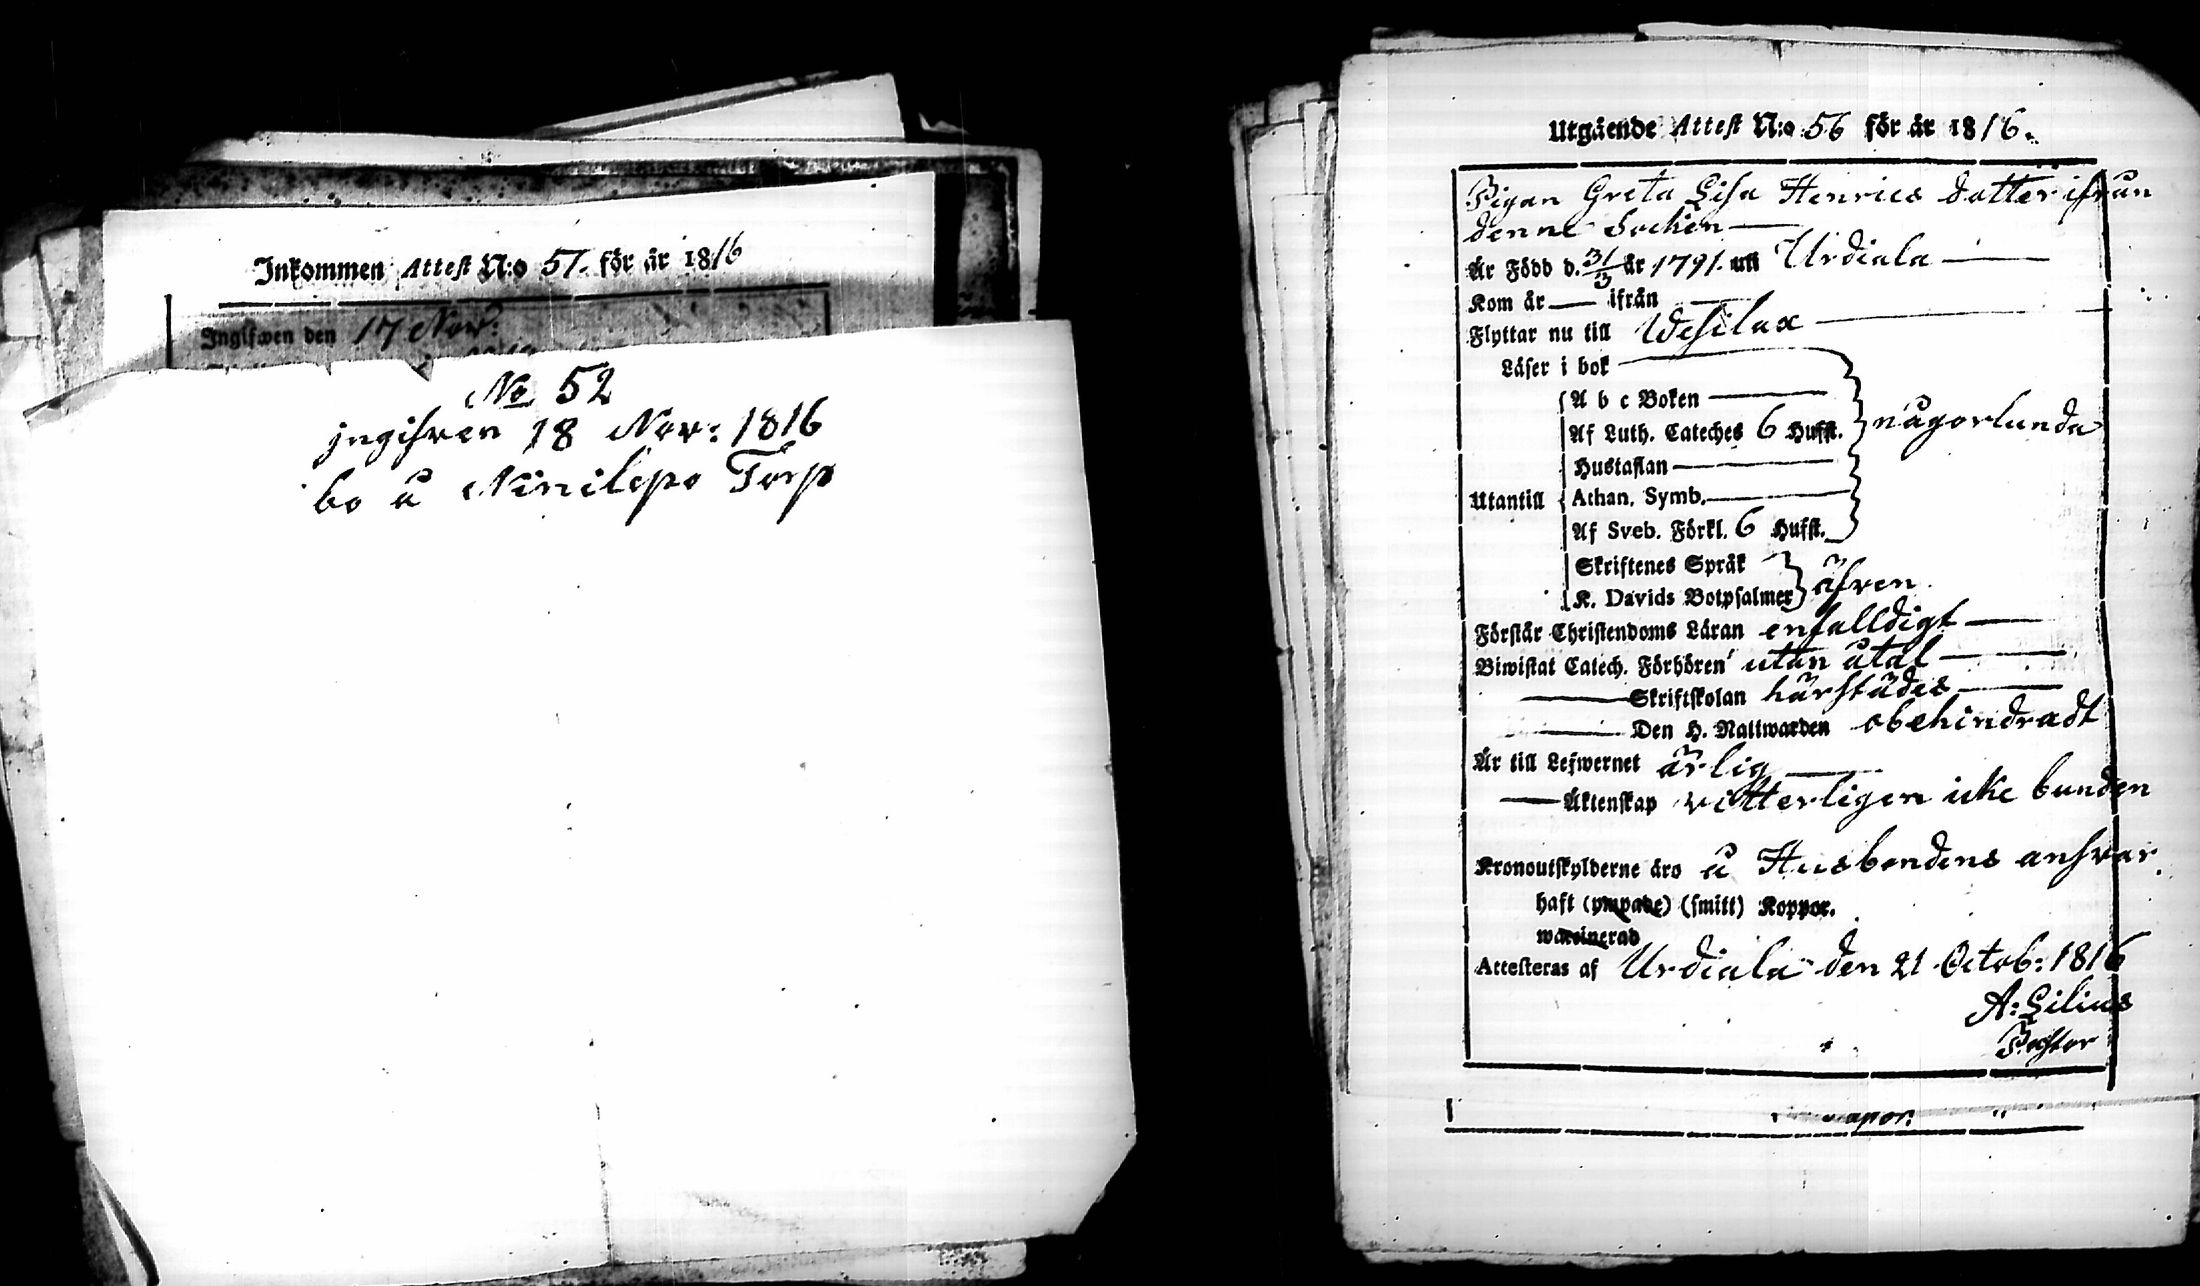 Inkommen Attest N:o 51. för år 1816
Ingifwen den 17 Nov:
No 52
ingifven 18 Nov: 1816
bo å Ninilepo Torp
Utgående Attest N:o 56 för år 1816.
Pigan Greta Lisa Henrics dotter ifrån
denne Sochen
Är Född d. 31/3 år 1791. uti Urdiala
Kom år — ifrån —
Flyttar nu till Wesilax
Läser i bok
A b c Boken
Af Luth. Cateches 6 Hufst. någorlunda
Hustaflan
Utantill Athan. Symb.
Af Sveb. Förkl. 6 Hufst.
Skriftenes Språk
K. Davids Botpsalmer äfven
Förstår Christendoms Läran enfalldigt
Biwistat Catech. Förhören utan åtal
Skriftskolan härstädes
Den H. Nattwarden obehindradt
Är till Lefwernet ärlig
Äktenskap vitterligen icke bunden
Kronoutskylderne äro å Husbondens ansvar.
haft (ympade) (smitt) Koppor.
waccinerad
Attesteras af Urdiala den 21 Octob: 1816
A: Lilius
Pastor